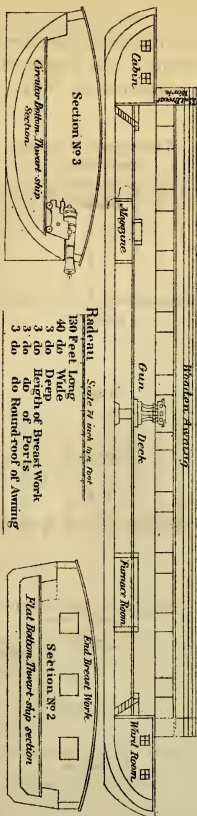 Wooden Awning
Breast
Work
Cabin
Magazine
Gun Deck
Furnace Room
Ward Room
Section Nº 3
Circular Bottom Thwart-ship
Section
Radeau Scale
inch to a Foot
130 Feet Long
40 do Wide
3 do Deep
3 do Heigth of Breast Work
3 do do of Ports
3 do do Round-roof of Awning
End Breast Work
Section Nº 2
Flat Bottom Thwart-ship section